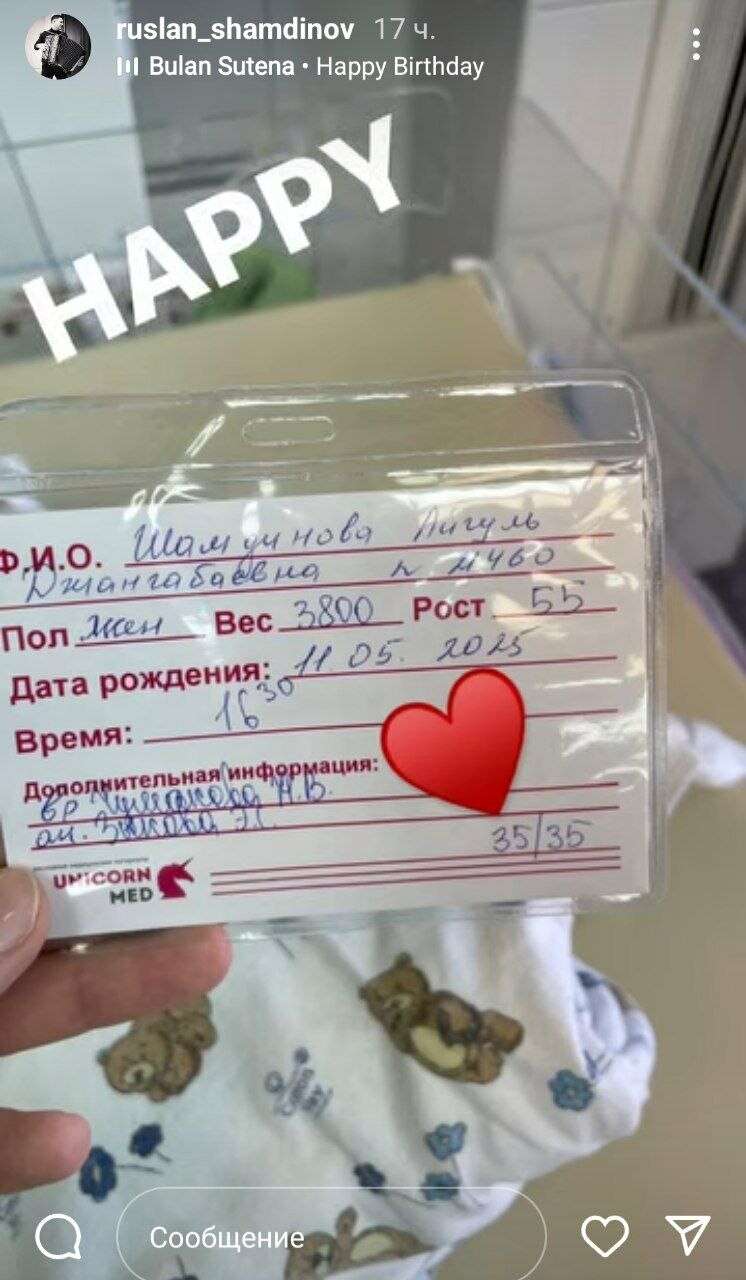 ruslan_shamdinov 17 ч.
Bulan Sutena • Happy Birthday
HAPPY
Ф.И.О. Шамдинова Айгуль
Джангабаевна н 4460
Пол жен Вес 3800 Рост 55
Дата рождения: 11.05.2025
Время: 16 30
Дополнительная информация:
вр Н.В.
ак.
35/35
UNICORN
MED
Сообщение